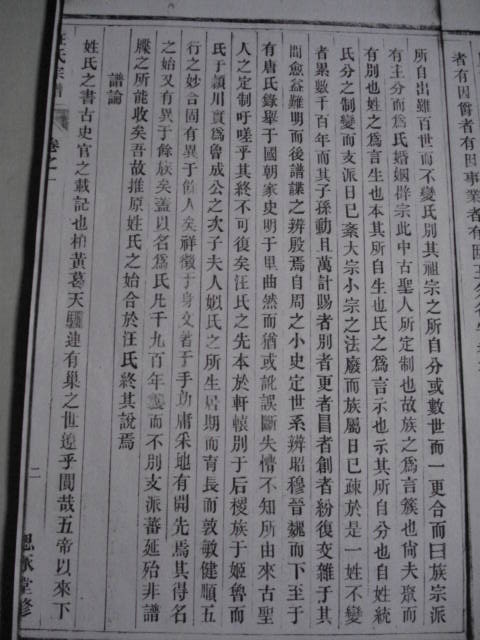 者有因爵者有因事業者有因
所自出雖百世而不變氏別其祖宗之所自分或數世而一更合而曰族宗派
有主分而爲氏婚姻辟宗此中古聖人所定制也故族之爲言簇也尙夫眾而
有別也姓之爲言生也本其所自生也氏之爲言示也示其所自分也自姓統
氏分之制變而支派日已紊大宗小宗之法廢而族屬日已疎於是一姓不變
者累數千百年而其子孫動且萬計賜者別者更者冒者創者紛復交雜于其
間愈益難明而後譜諜之辨殷焉自周之小史定世系辨昭穆晉魏而下至于
有唐氏錄舉于國朝家史明于里曲然而猶或訛誤斷失懵不知所由來古聖
人之定制吁嗟乎其終不可復矣汪氏之先本於軒轅別于后稷族于姬魯而
氏于潁川實爲魯成公之次子夫人姒氏之所生居期而育長而敦敏健順五
行之妙合固有異于餘人矣祥徵于身文著于手功庸采地有開先焉其得名
之始又有異于餘族矣蓋以名爲氏凡千九百年襲而不別支派蕃延殆非譜
牒之所能收矣吾故推原姓氏之始合於汪氏終其說焉
譜論
姓氏之書古史官之載記也柏黃葛天驪連有巢之世遼乎閴哉五帝以來下
氏宗譜
卷之一
二
思承堂修